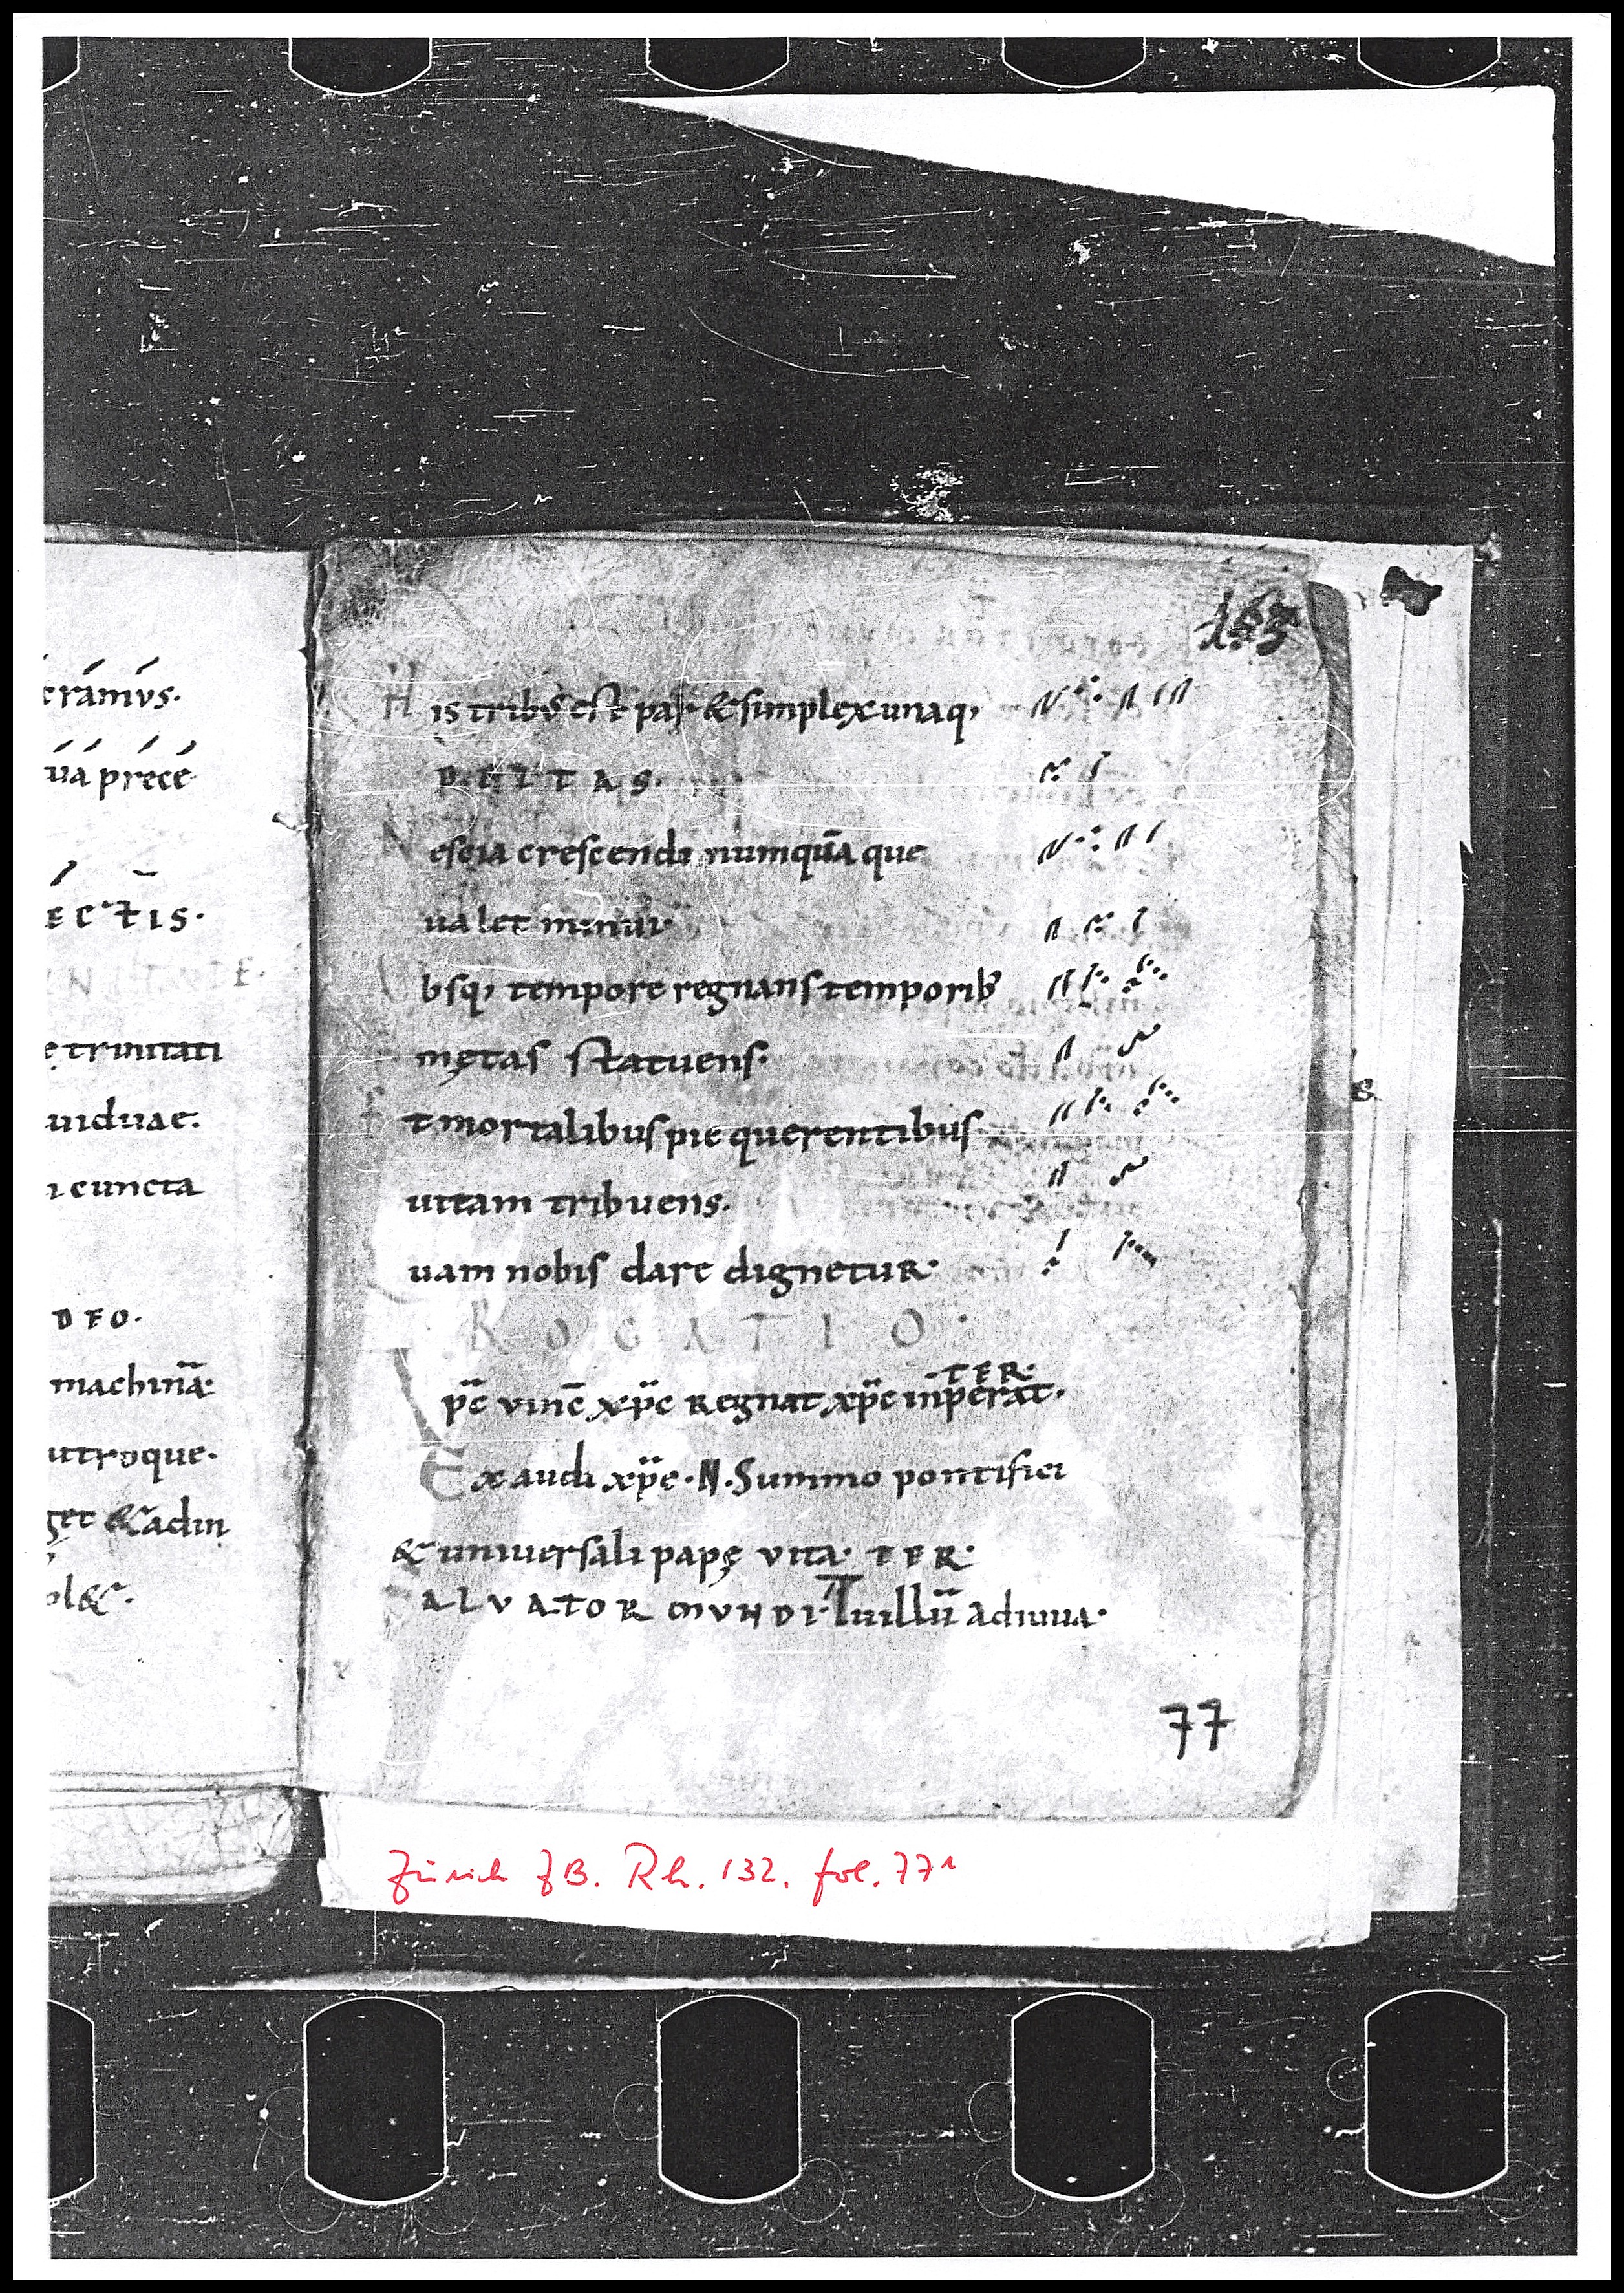 cramvs·
ua prece
ECTIS·
e trinitati
uiduae.
cuncta
DEO·
machinā·
utroque·
get & adin
ol&·
163
His tribꝰ est par & simplex unaqꝫ
DEITAS.
Nescia crescendi numquā que
ualet minui·
Vbsqꝫ tempore regnans temporibꝰ
mętas statuens·
Et mortalibus pie querentibus
uitam tribuens.
uam nobis dare dignetur·
ROGATIO·
TER·
xp̄c vinc̄ xp̄c regnat xp̄c inperat·
Exaudi xp̄e· N· Summo pontifici
& uniuersali papę vita· TER·
ALVATOR MVNDI· Tu illū adiuua·
77
Zürich ZB. Rh. 132. fol. 77r